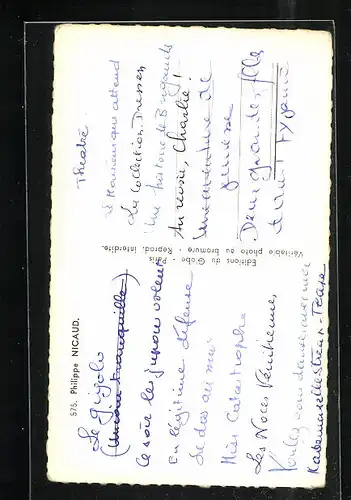 575. Philippe NICAUD.
Le gigolo
Ce soir les jupons volent
En légitime défense
Le dos au mur
Miss Catastrophe
Les Noces Vénitiennes
Voulez vous danser avec moi
Mademoiselle Strip-Tease
Editions du Globe - Paris
Véritable photo au bromure - Reprod. interdite.
Théâtre
attend
La Collection Dressen
Une histoire de Brigands
Au revoir, Charlie!
Une aventure de
jeunesse
Deux grandes filles